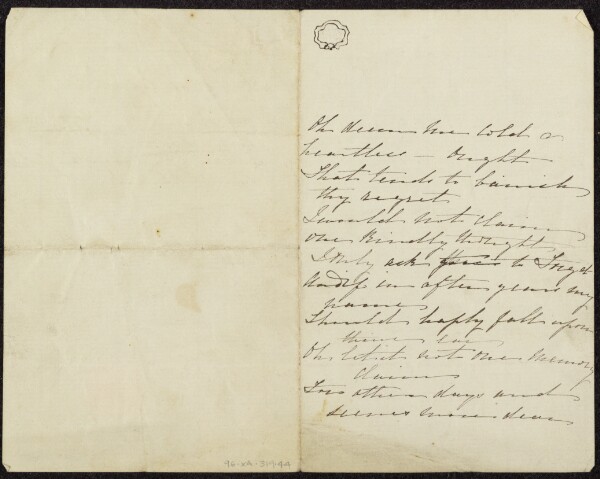 Oh deem me cold &
heartless — Ought
That tends to banish
thy regret
I would not claim
one kindly thought
I only ask to forget
And if in after years my
name
Should haply fall upon
thine ear
Oh let it not one memory
claim
From other days and
scenes more dear